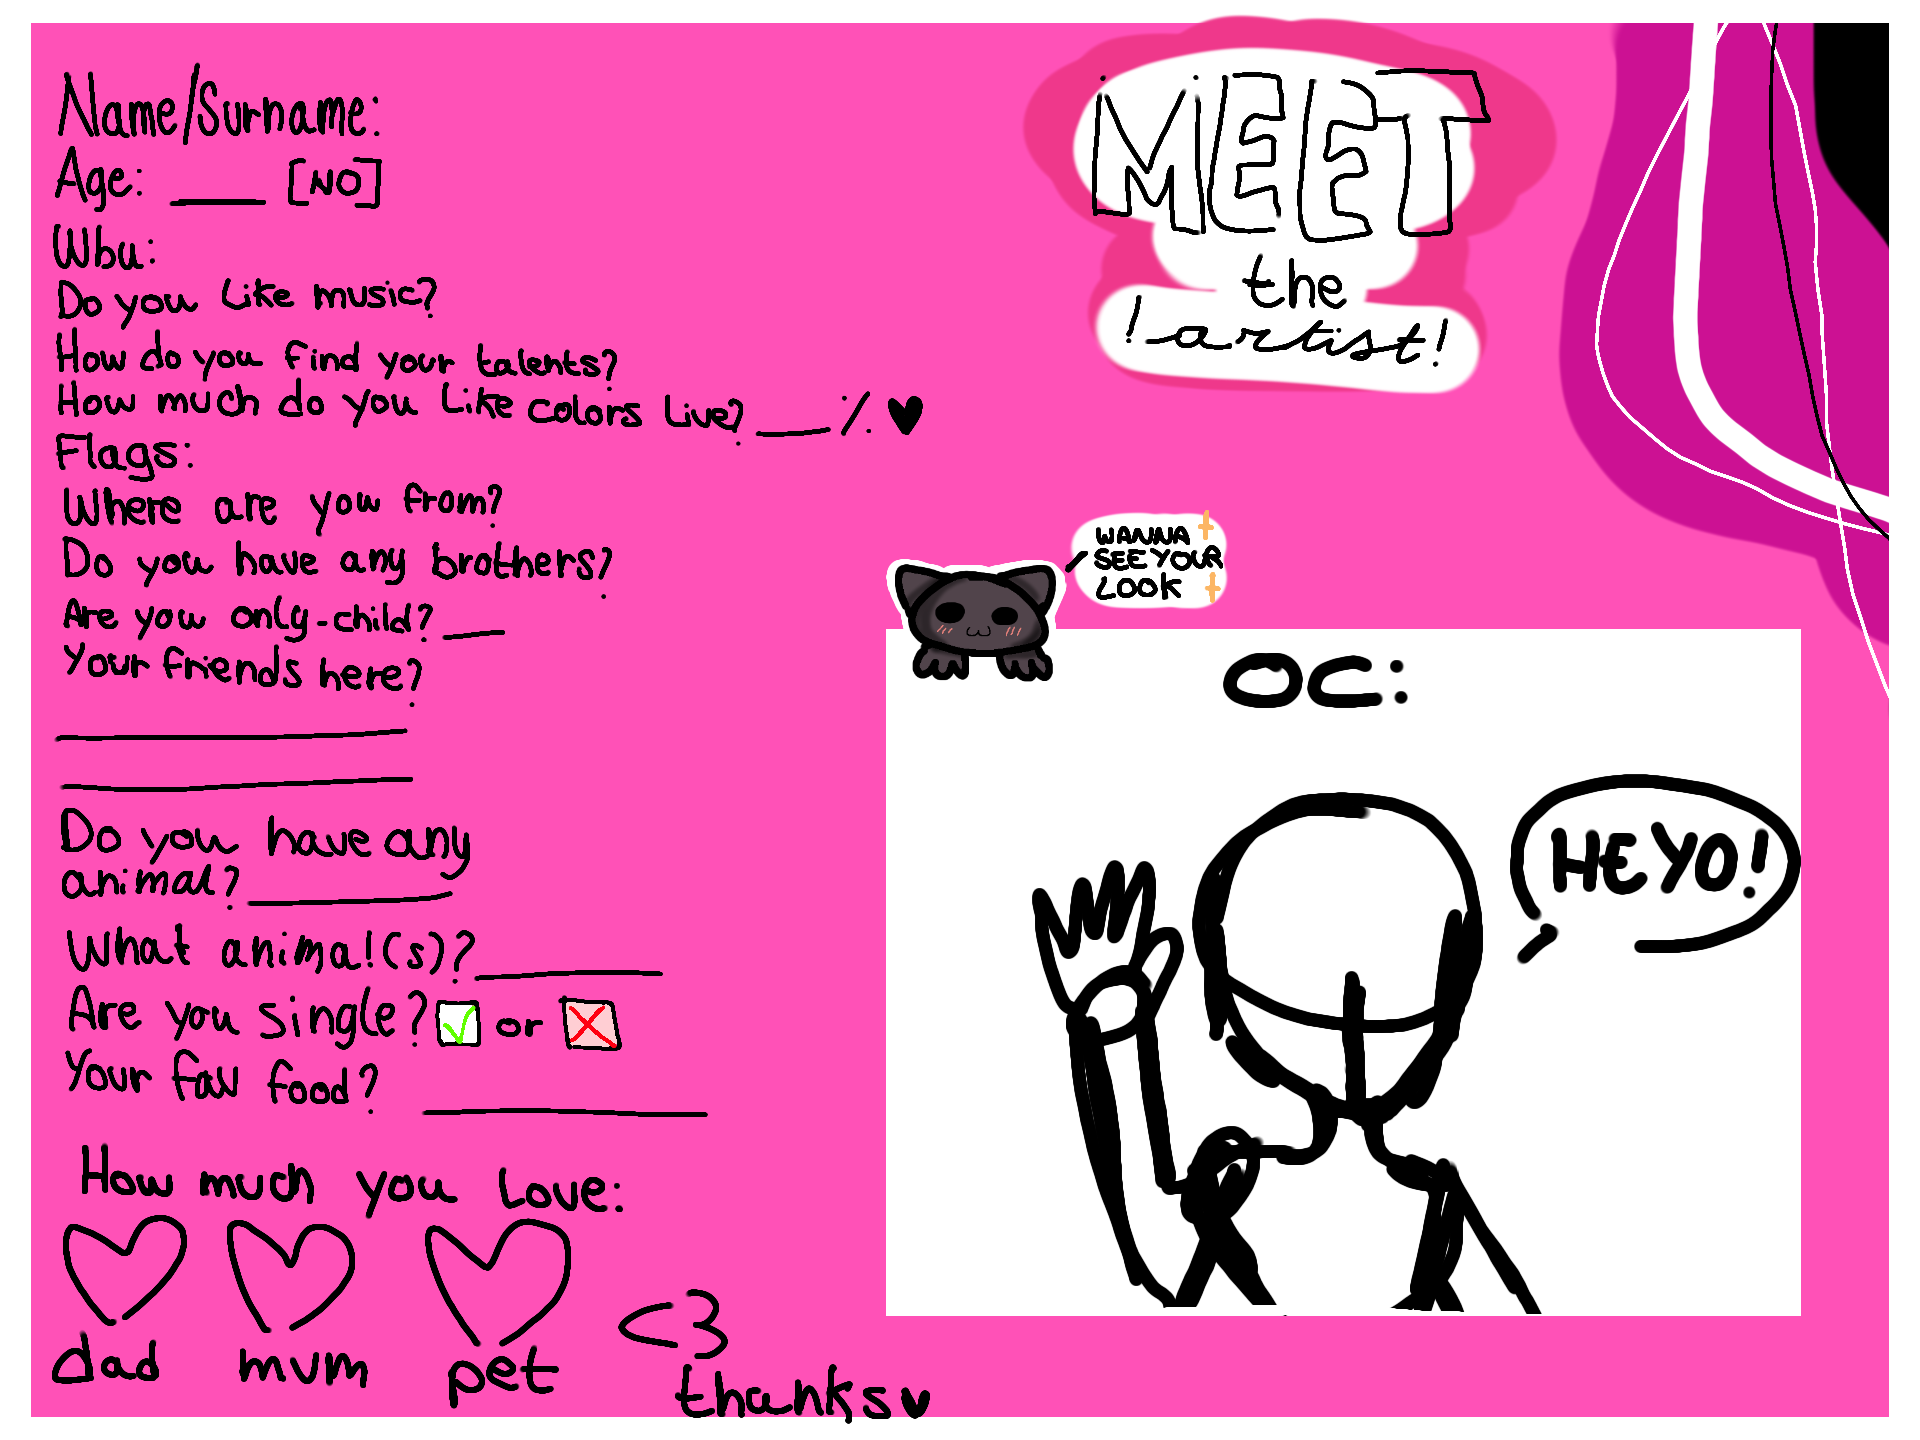 Name/Surname:
Age: ____ [NO]
Wbu:
Do you like music?
How do you find your talents?
How much do you like colors live? ___ % ♥
Flags:
Where are you from?
Do you have any brothers?
Are you only-child? __
Your friends here?
Do you have any
animal? ____
What animal(s)? ____
Are you single? ☑ or ☒
Your fav food? ____
How much you love:
dad mum pet
<3
thanks ♥
MEET
the
!artist!
WANNA
SEE YOUR
LOOK
OC:
HEYO!